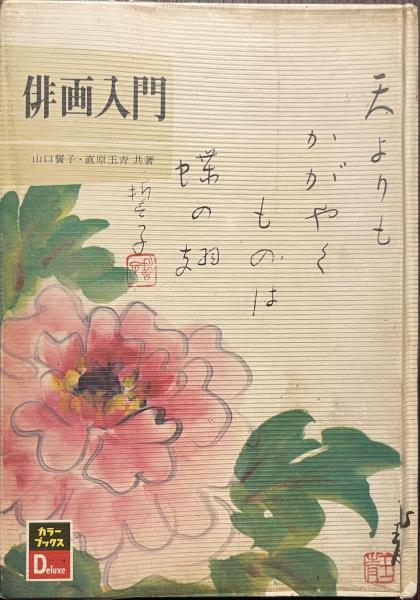 俳画入門
山口誓子・直原玉青 共著
天よりも
かがやく
ものは
蝶の翅
誓子
カラー
ブックス
Deluxe